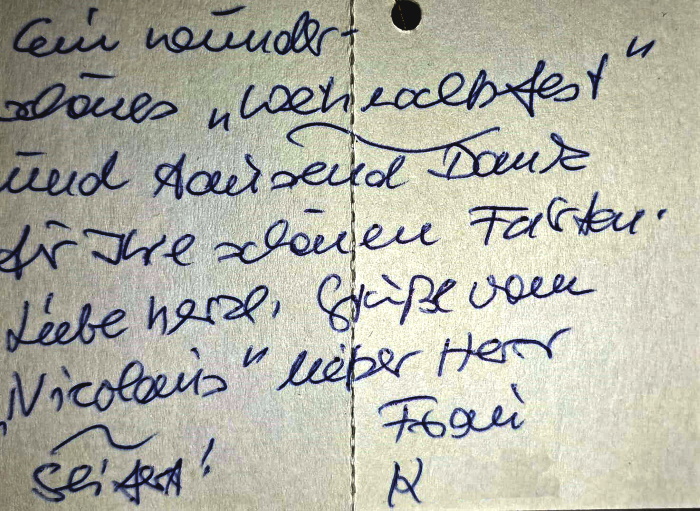 Ein wunder-
schönes „Weihnachtsfest"
und tausend Dank
für Ihre schönen
Liebe herzl. Grüße vom
„Nicolaus" lieber Herr
Frau
Seifert! K